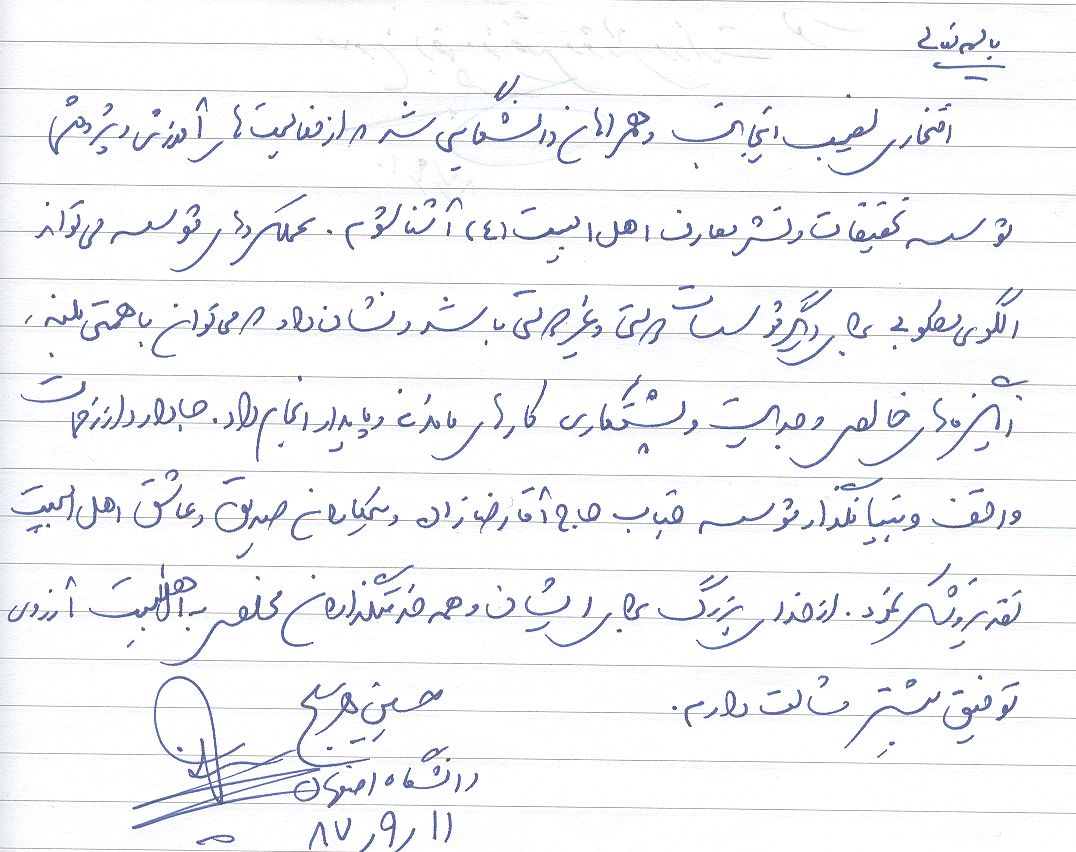 باسمه تعالی
افتخاری نصیب اینجانب و همراهان دانشگاهی شد که از فعالیت های آموزشی و پژوهشی
موسسه تحقیقات و نشر معارف اهل البیت (ع) آشنا شوم. عملکردهای موسسه می تواند
الگوی مطلوبی برای دیگر موسسات دولتی و غیر دولتی باشد و نشان داد که می توان با همتی بلند،
انگیزه های خالص و جدیت و پشتکاری کارهای ماندنی و پایدار انجام داد. جا دارد از زحمات
واقف و بنیانگذار موسسه جناب حاج آقا رضازاده و همکاران صدیق و عاشق اهل البیت
تقدیر و تشکر نمود. از خدای بزرگ برای ایشان و همه خدمتگذاران مخلص به اهل البیت آرزوی
توفیق بیشتر مسالت دارم.
حسین هرسیج
دانشگاه اصفهان
۸۷/۹/۱۱